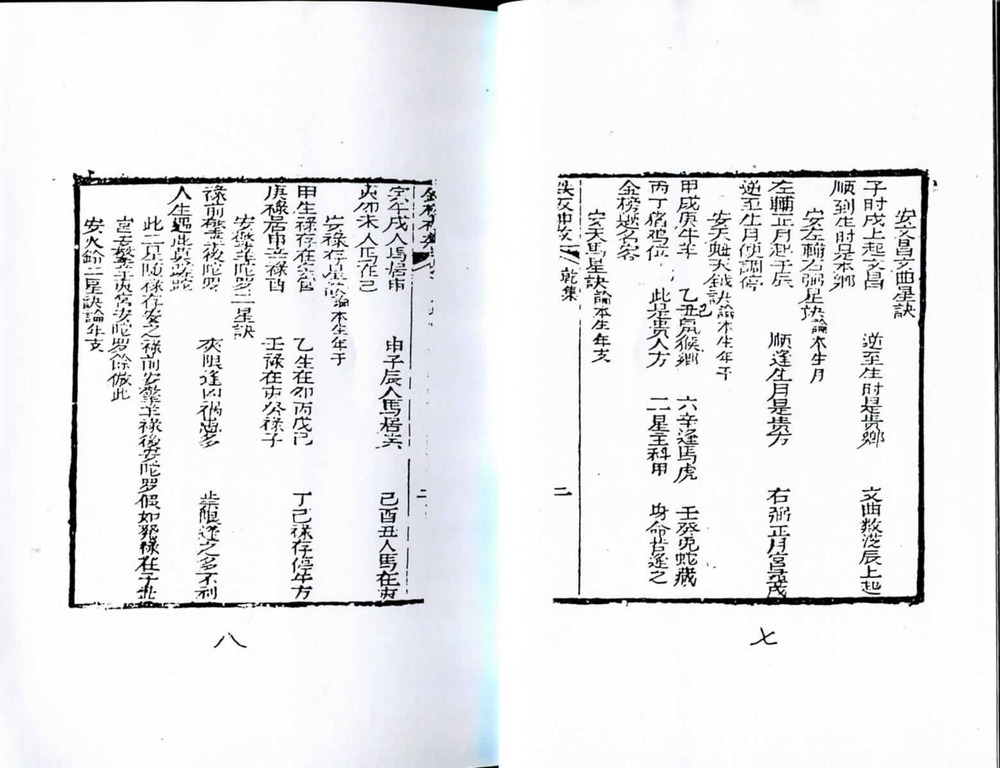 安文昌文曲星訣
子時戌上起文昌 逆至生時是貴鄉 文曲數從辰上起
順到生時是本鄉
安左輔右弼星訣論本生月
左輔正月起于辰 順逢生月是貴方 右弼正月宮尋戌
逆至生月便調停
安天魁天鉞訣論本生年干
甲戊庚牛羊 乙己鼠猴鄉 六辛逢馬虎 壬癸兎蛇藏
丙丁猪雞位 此是貴人方 二星主科甲 身命若逢之
金榜題名客
安天馬星訣論本生年支
乾集
二
七
寅午戌人馬居申 申子辰人馬居寅 巳酉丑人馬在亥
亥卯未人馬在巳
安祿存星訣論本生年干
甲生祿存在寅宮 乙生在卯丙戊巳 丁己祿存停午方
庚祿居申辛祿酉 壬祿在亥癸祿子
安擎羊陀罗二星訣
祿前擎羊後陀罗 夾限逢凶禍患多 歲限逢之多不利
人生遇此莫
此二星隨祿存安之祿前安擎羊祿後安陀罗假如祿在子
宮安擎羊亥宮安陀罗餘倣此
安火鈴二星訣論年支
二
八